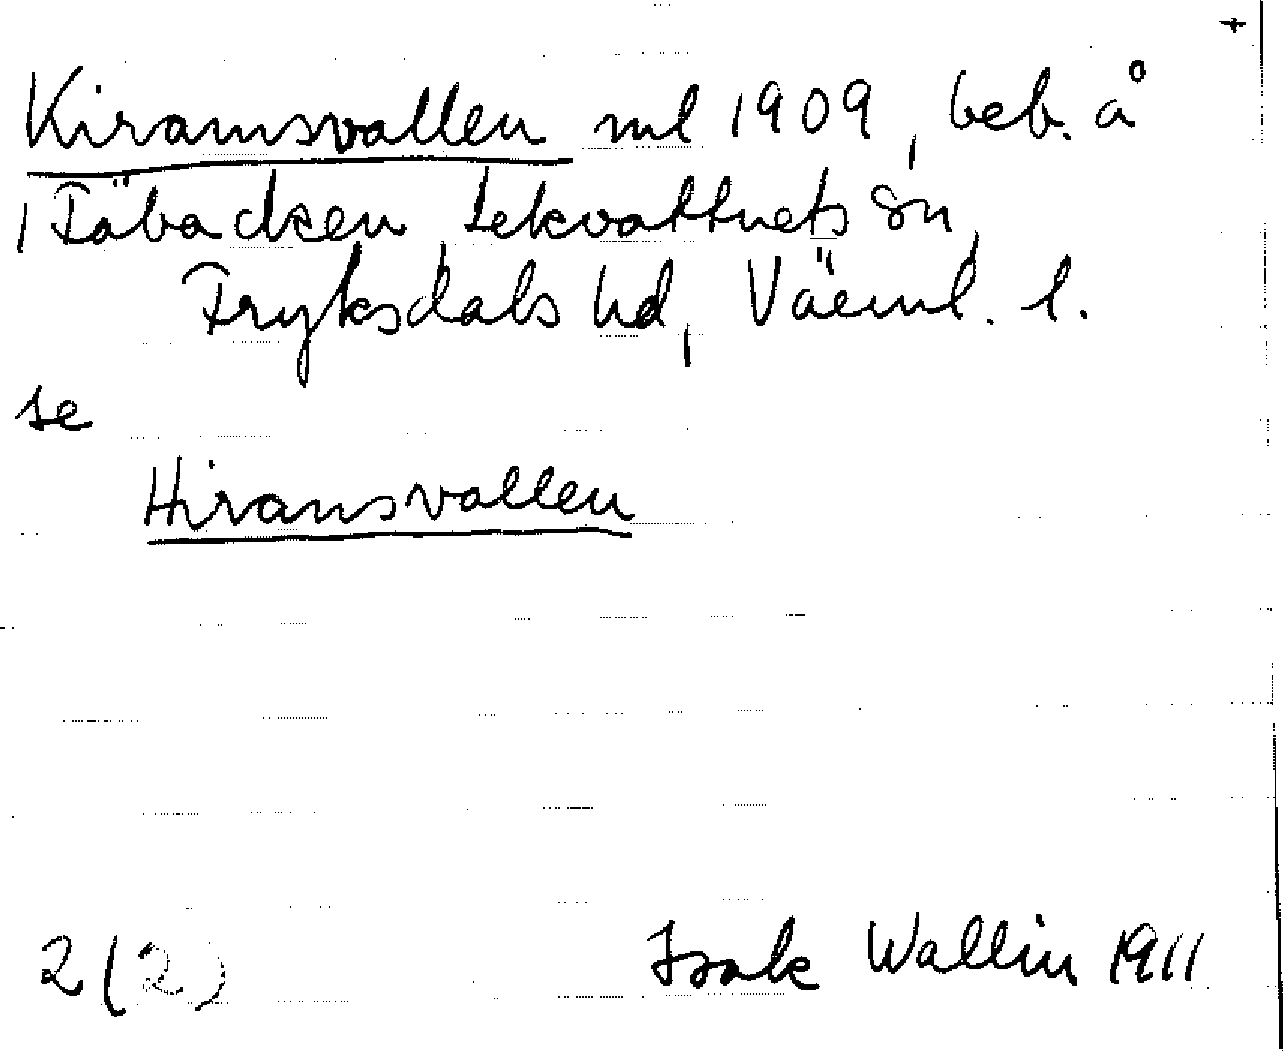 +
Kiramsvallen ml 1909, beb. å
Fäbacken Lekvattnets sn,
Fryksdals hd, Värml. l.
se
Hiransvallen
2(2) Isak Wallin 1911